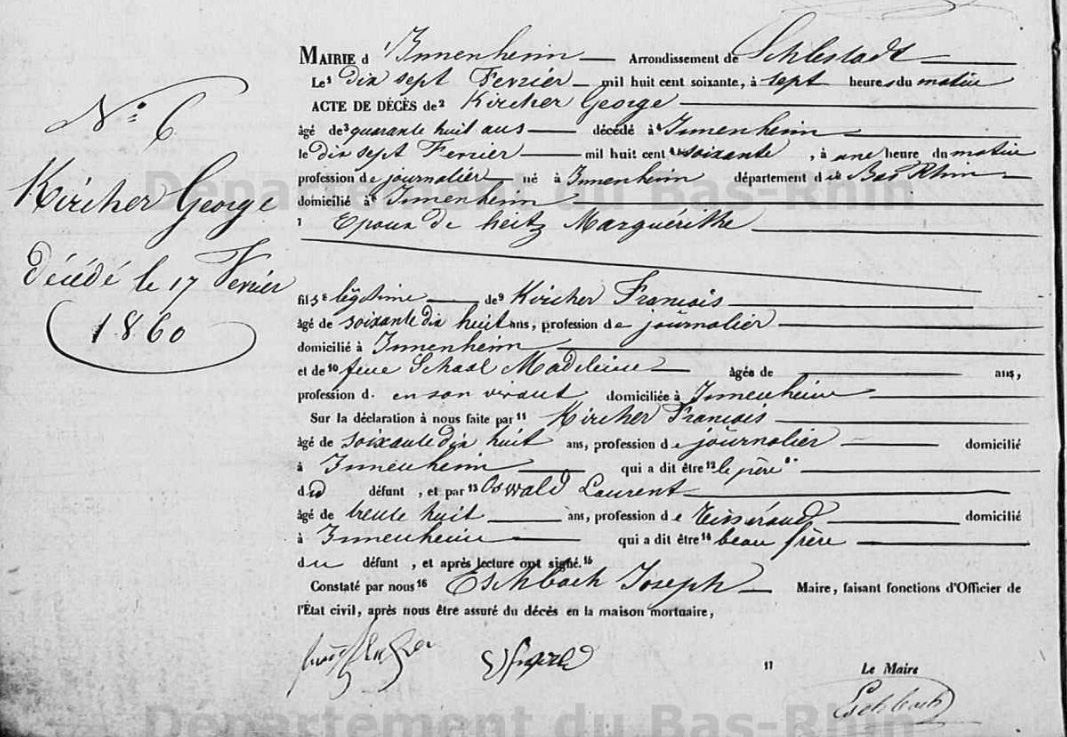 N.º 6
Kircher George
décédé le 17 Fevrier
1860
MAIRIE d'Innenheim Arrondissement de Schlestadt
Le 1 dix sept Fevrier mil huit cent soixante, à sept heures du matin
ACTE DE DÉCÈS de 2 Kircher George
âgé de 3 quarante huit ans décédé à 4 Innenheim
le dix sept Fevrier mil huit cent soixante, à une heure du matin
profession de journalier né à Innenheim département d Bas Rhin
domicilié à 6 Innenheim
7 Epoux de heitz Marguérithe
fils 8 légitime de 9 Kircher Francois
âgé de soixante dix huit ans, profession de journalier
domicilié à Innenheim
et de 10 feue Schaal Madeleine âgée de ans,
profession d. en son vivant domiciliée à Innenheim
Sur la déclaration à nous faite par 11 Kircher Francois
âgé de soixante dix huit ans, profession de journalier domicilié
à Innenheim qui a dit être 12 le père
du défunt, et par 13 Oswald Laurent
âgé de trente huit ans, profession de Tisserand domicilié
à Innenheim qui a dit être 14 beau frère
du défunt, et après lecture ont signé. 15
Constaté par nous 16 Eschbach Joseph Maire, faisant fonctions d'Officier de
l'État civil, après nous être assuré du décès en la maison mortuaire,
11 Le Maire
Eschbach
Département du Bas-Rhin
Département du Bas-Rhin